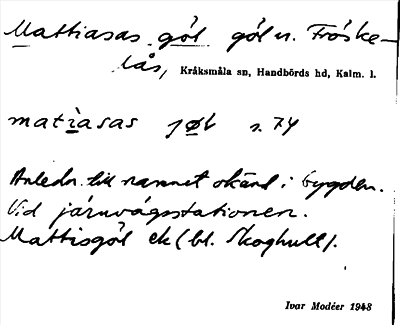 Mattiasas göl göl n. Fröske-
lås, Kråksmåla sn, Handbörds hd, Kalm. l.
matiasas jøl s. 74
Anledn. till namnet okänd i bygden.
Vid järnvägsstationen.
Mattisgöl ek (bl. Skoghult).
Ivar Modéer 1948